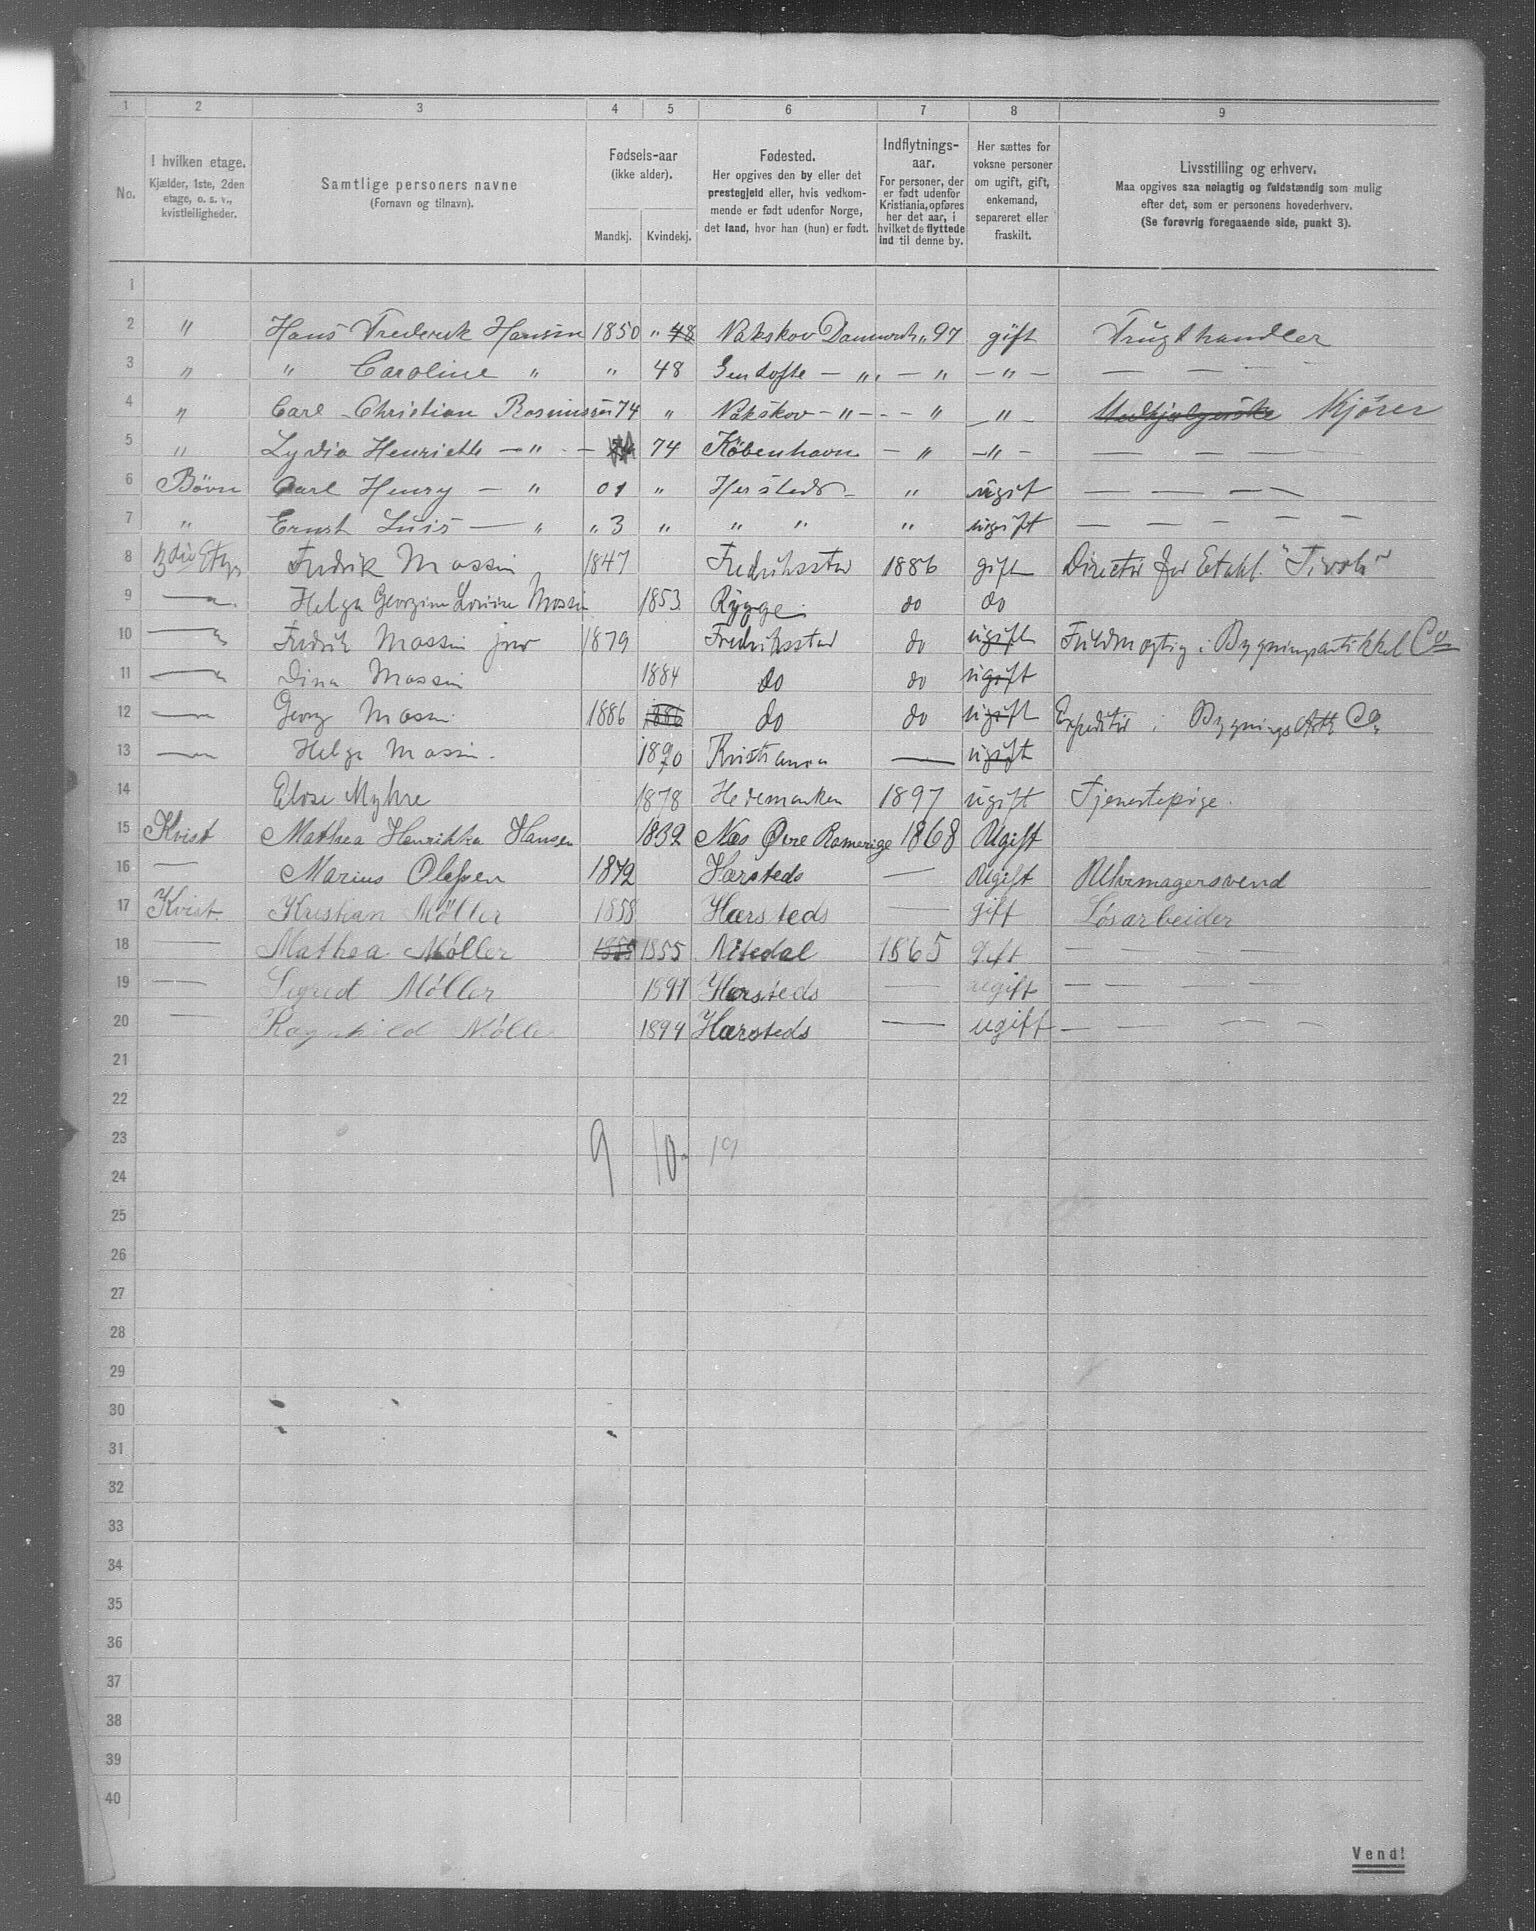 1 2 3 4 5 6 7 8 9
No.
I hvilken etage.
Kjælder, 1ste, 2den
etage, o. s. v.,
kvistleiligheder.
Samtlige personers navne
(Fornavn og tilnavn).
Fødsels-aar
(ikke alder).
Mandkj. Kvindekj.
Fødested.
Her opgives den by eller det
prestegjeld eller, hvis vedkom-
mende er født udenfor Norge,
det land, hvor han (hun) er født.
Indflytnings-
aar.
For personer, der
er født udenfor
Kristiania, opføres
her det aar, i
hvilket de flyttede
ind til denne by.
Her sættes for
voksne personer
om ugift, gift,
enkemand,
separeret eller
fraskilt.
Livsstilling og erhverv.
Maa opgives saa nøiagtig og fuldstændig som mulig
efter det, som er personens hovederhverv.
(Se forøvrig foregaaende side, punkt 3).
1
2 " Hans Frederik Hansen 1850 " 48 Nakskov Danmark " 97 gift Frugthandler
3 " " Caroline " " 48 Gentofte — " — " — " — — — —
4 " Carl Christian Rasmussen 74 " Nakskov — " — - - " — " — Kjører
5 " Lydia Henriette — " — 74 København — " — " — — — — —
6 Børn Carl Henry — " 01 " Hersteds — " ugift — — — —
7 " Ernst Luis — " " 3 " " " " ugift — — — — —
8 3die Etage Fredrik Massin 1847 Fredriksstad 1886 gift Director for Etabl. "Tivoli"
9 — " Helga Georgine Lovise Massin 1853 Rygge do do
10 — " Fredrik Massin jnr 1879 Fredriksstad do ugift Fuldmægtig i Bygningsartikkel Co
11 — " Dina Massin 1884 do do ugift
12 — " Georg Massin 1886 1886 do do ugift Expeditør i Bygnings Artk Co.
13 — " Helga Massin. 1890 Kristiania — ugift
14 Elose Myhre 1878 Hedemarken 1897 ugift Tjenestepige.
15 Kvist Mathea Henrikka Hansen 1832 Næs Øvre Romerige 1868 Ugift
16 — Marius Olefsen 1872 Harsteds — Ugift Uhrmagersvend
17 Kvist. Kristian Møller 1858 Hærsteds — gift Løsarbeider
18 — Mathea Møller 1855 1855 Nitedal 1865 gift — — —
19 — Sigred Møller 1891 Hersteds — ugift — — — —
20 — Ragnhild Møller 1894 Hærsteds — ugift — — — —
21
22
23 9 10 19
24
25
26
27
28
29
30
31
32
33
34
35
36
37
38
39
40
Vend!